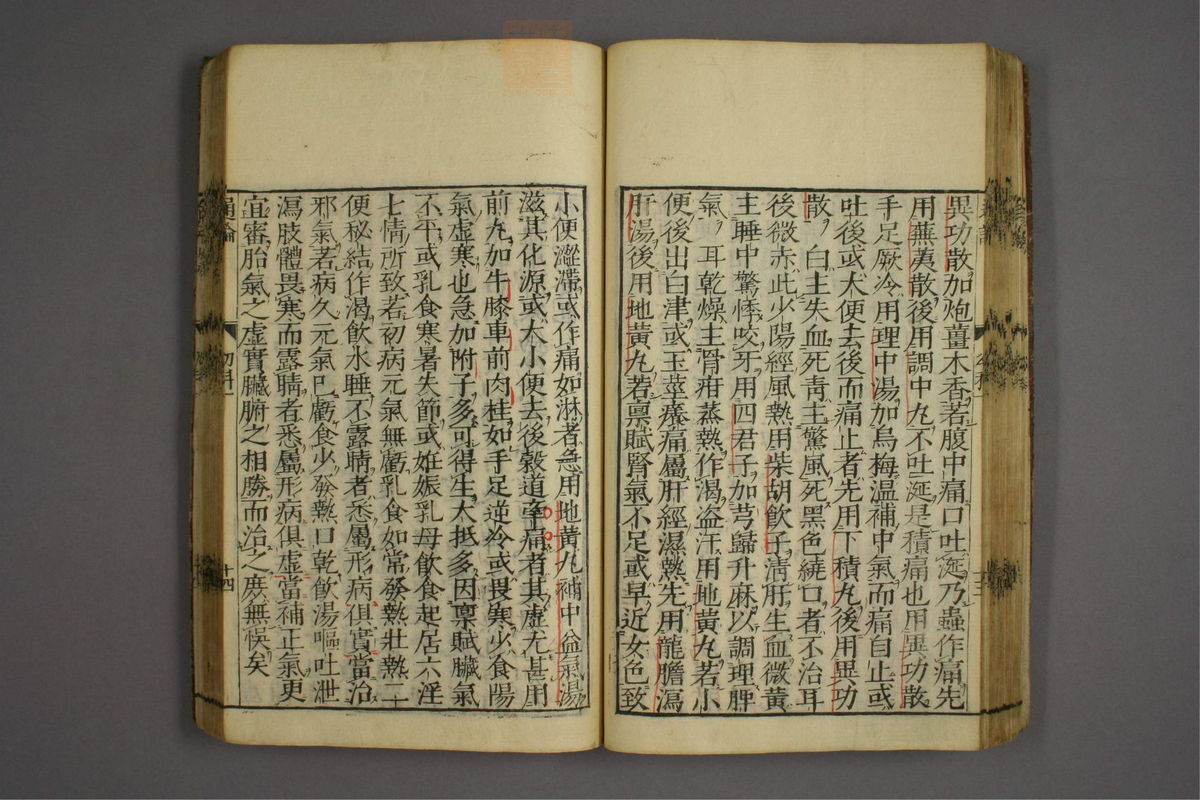 異功散加炮薑木香若腹中痛口吐涎乃蟲作痛先
用蕪荑散後用調中丸不吐涎是積痛也用異功散
手足厥冷用理中湯加烏梅溫補中氣而痛自止或
吐後或大便去後而痛止者先用下積丸後用異功
散白主失血死靑主驚風死黑色繞口者不治耳
後微赤此少陽經風熱用柴胡飲子淸肝生血微黃
主睡中驚悸咬牙用四君子加芎歸升麻以調理脾
氣耳乾燥主腎疳蒸熱作渴盜汗用地黃丸若小
便後出白津或玉莖癢痛屬肝經濕熱先用龍膽瀉
肝湯後用地黃丸若禀賦腎氣不足或早近女色致
小便澀滯或作痛如淋者急用地黃丸補中益氣湯
滋其化源或大小便去後穀道牽痛者其虛尤甚用
前丸加牛膝車前肉桂如手足逆冷或畏寒少食陽
氣虛寒也急加附子多可得生大抵多因禀賦臟氣
不平或乳食寒暑失節或姙娠乳母飲食起居六淫
七情所致若初病元氣無虧乳食如常發熱壯熱二
便秘結作渴飲水睡不露睛者悉屬形病俱實當治
邪氣若病久元氣已虧食少發熱口乾飲湯嘔吐泄
瀉肢體畏寒而露睛者悉屬形病俱虛當補正氣更
宜審胎氣之虛實臟腑之相勝而治之庶無悞矣
十四